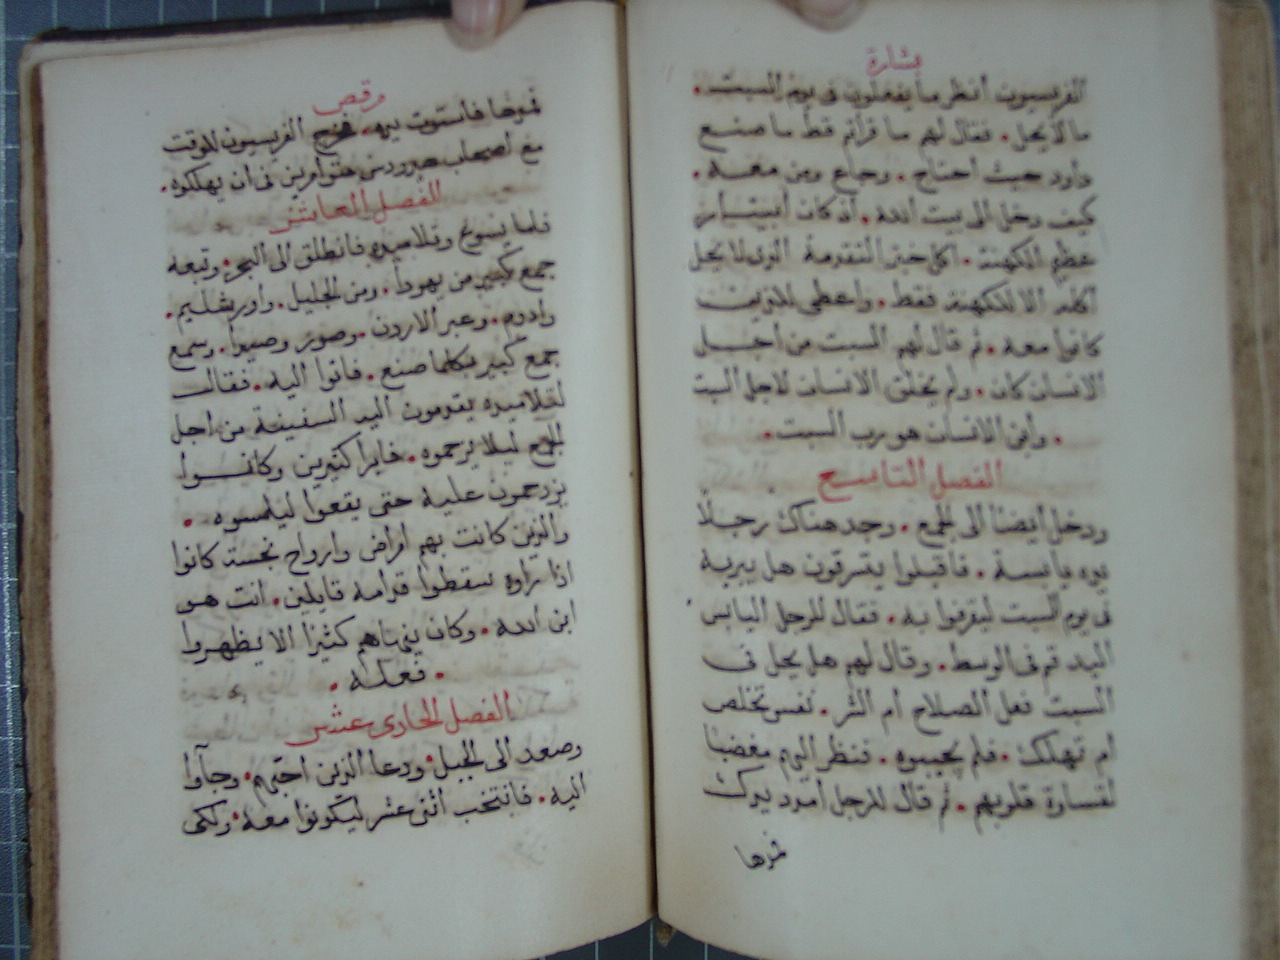 بشارة
الفريسيون أنظر ما يفعلون في يوم السبت .
ما لا يحل . فقال لهم ما قرأتم قط ما صنع
داود حيث أحتاج . وجاع ومن معه .
كيف دخل الى بيت الله . اذ كان أبيتار
عظيم الكهنة . اكل خبز التقدمة الذي لا يحل
اكله الا للكهنة فقط . واعطى للذين
كانوا معه . ثم قال لهم السبت من أجل
الانسان كان . ولم يخلق الانسان لاجل السبت
. وأبن الانسان هو رب السبت .
الفصل التاسع
ودخل أيضا الى المجمع . وجد هناك رجلا
يده يابسة . فأقبلوا يقرفون هل يبريه
في يوم السبت ليقرفوا به . فقال للرجل اليابس
اليد قم في الوسط . وقال لهم هل يحل في
السبت فعل الصلاح أم الشر . نفس تخلص
ام تهلك . فلم يجيبوه . فنظر اليهم مغضبا
لقساوة قلوبهم . ثم قال للرجل أمدد يدك
فمدها
مرقص
فمدها فأستوت يده . فخرج الفريسيون للوقت
مع أصحاب هيرودس متوأمرين في أن يهلكوه .
الفصل العاشر
فلما يسوع وتلاميذه فانطلق الى البحر . وتبعه
جمع كبير من يهودا . ومن الجليل . واورشليم .
وادوم . وعبر الاردن . وصور وصيدا . وسمع
جمع كبير بكلما صنع . فاتوا اليه . فقال
لتلاميذه يقدمون اليه السفينة من اجل
الجمع ليلا يزحموه . فابرأ كثيرين وكانوا
يزدحمون عليه حتى يقعوا ليلمسوه .
والذين كانت بهم أمراض وارواح نجسة كانوا
اذا راوه سقطوا قدامه قايلين . انت هو
ابن الله . وكان ينهاهم كثيرا الا يظهروا
. فعله .
الفصل الحادي عشر
وصعد الى الجبل . ودعا الذين احبهم . وجآوا
اليه . فانتخب أثني عشر ليكونوا معه . ولكى